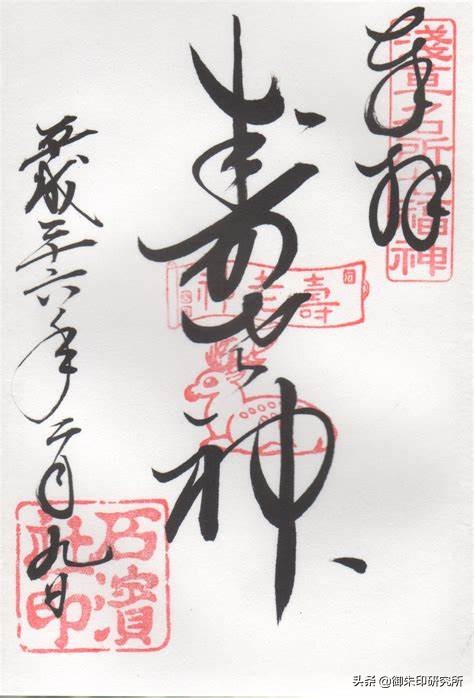 淺草名所七福神
奉拝
壽老神
寿老神
平成二十六年二月九日
石濱
社印
头条 @御朱印研究所